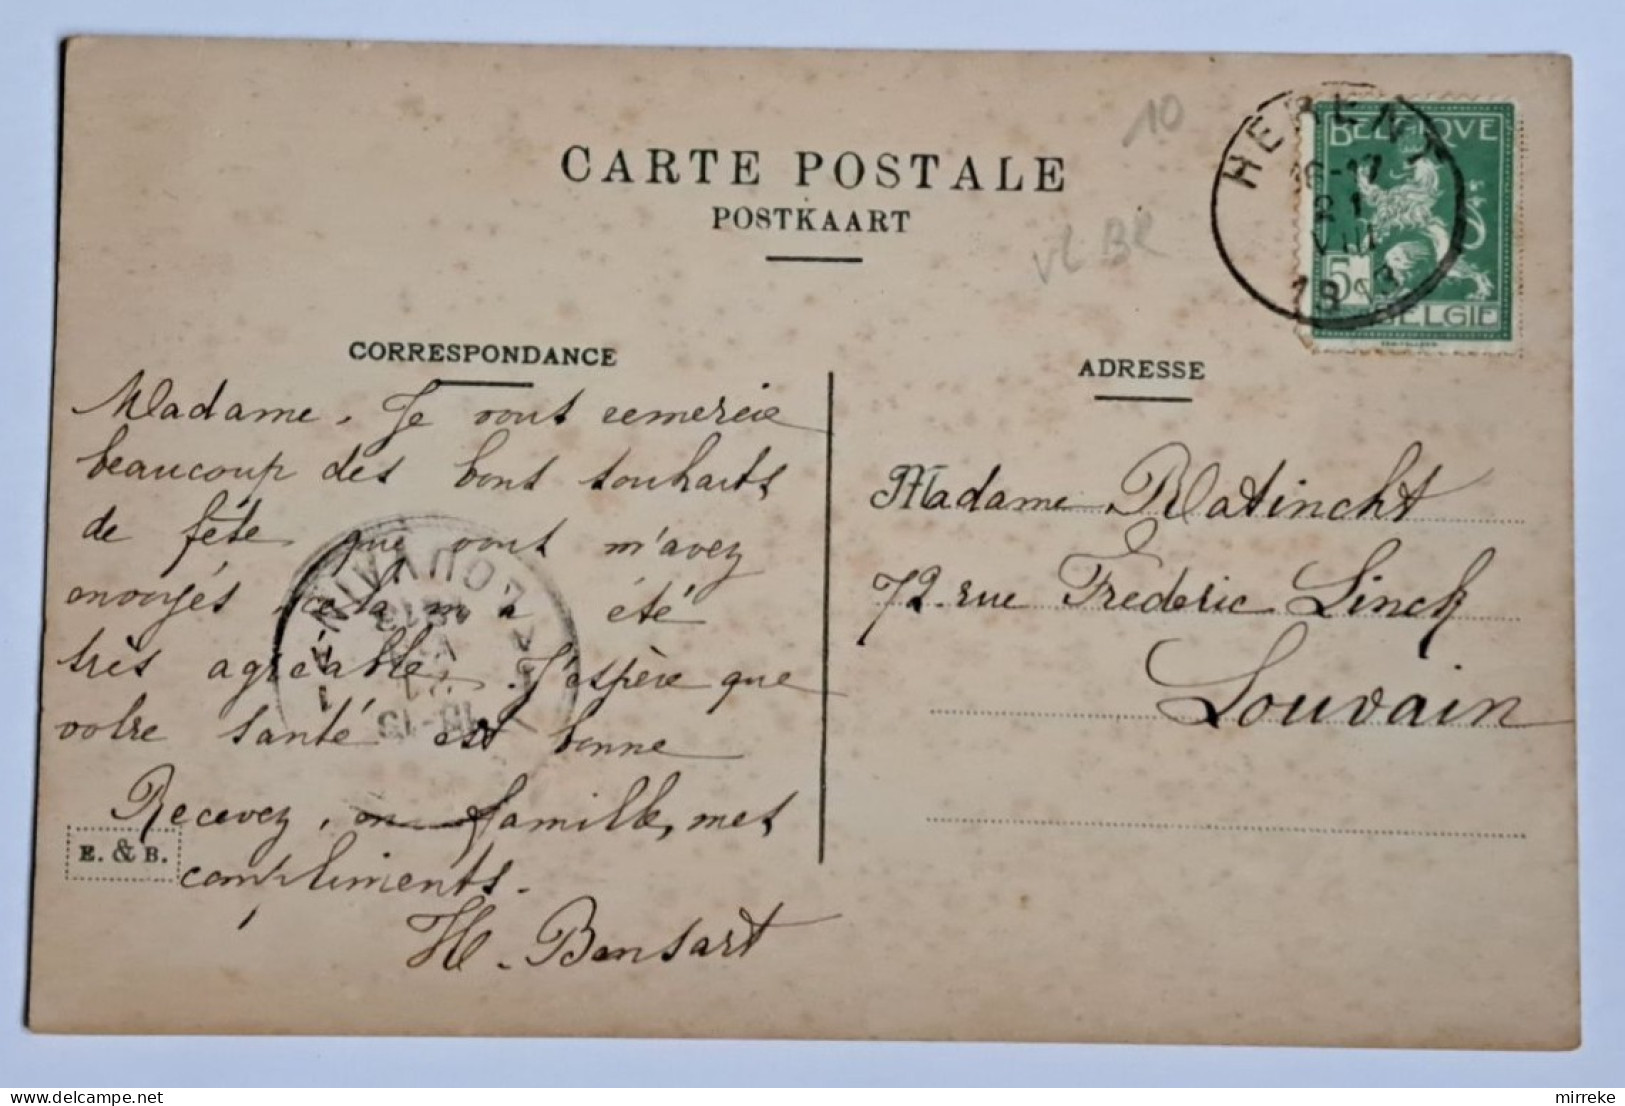 10
CARTE POSTALE
POSTKAART
VL BR
HERENT
16-17
21
VIII
1913
BELGIQVE
5
BELGIE
CORRESPONDANCE
Madame. Je vous remercie
beaucoup des bons souhaits
de fête que vous m'avez
envoyés cela m'a été
très agréable. J'espère que
votre santé est bonne
Recevez, en famille, mes
compliments.
H. Bensart
E. & B.
LOUVAIN
18-19
1913
ADRESSE
Madame Ratincht
72 rue Frederic Linck
Louvain
mirreke